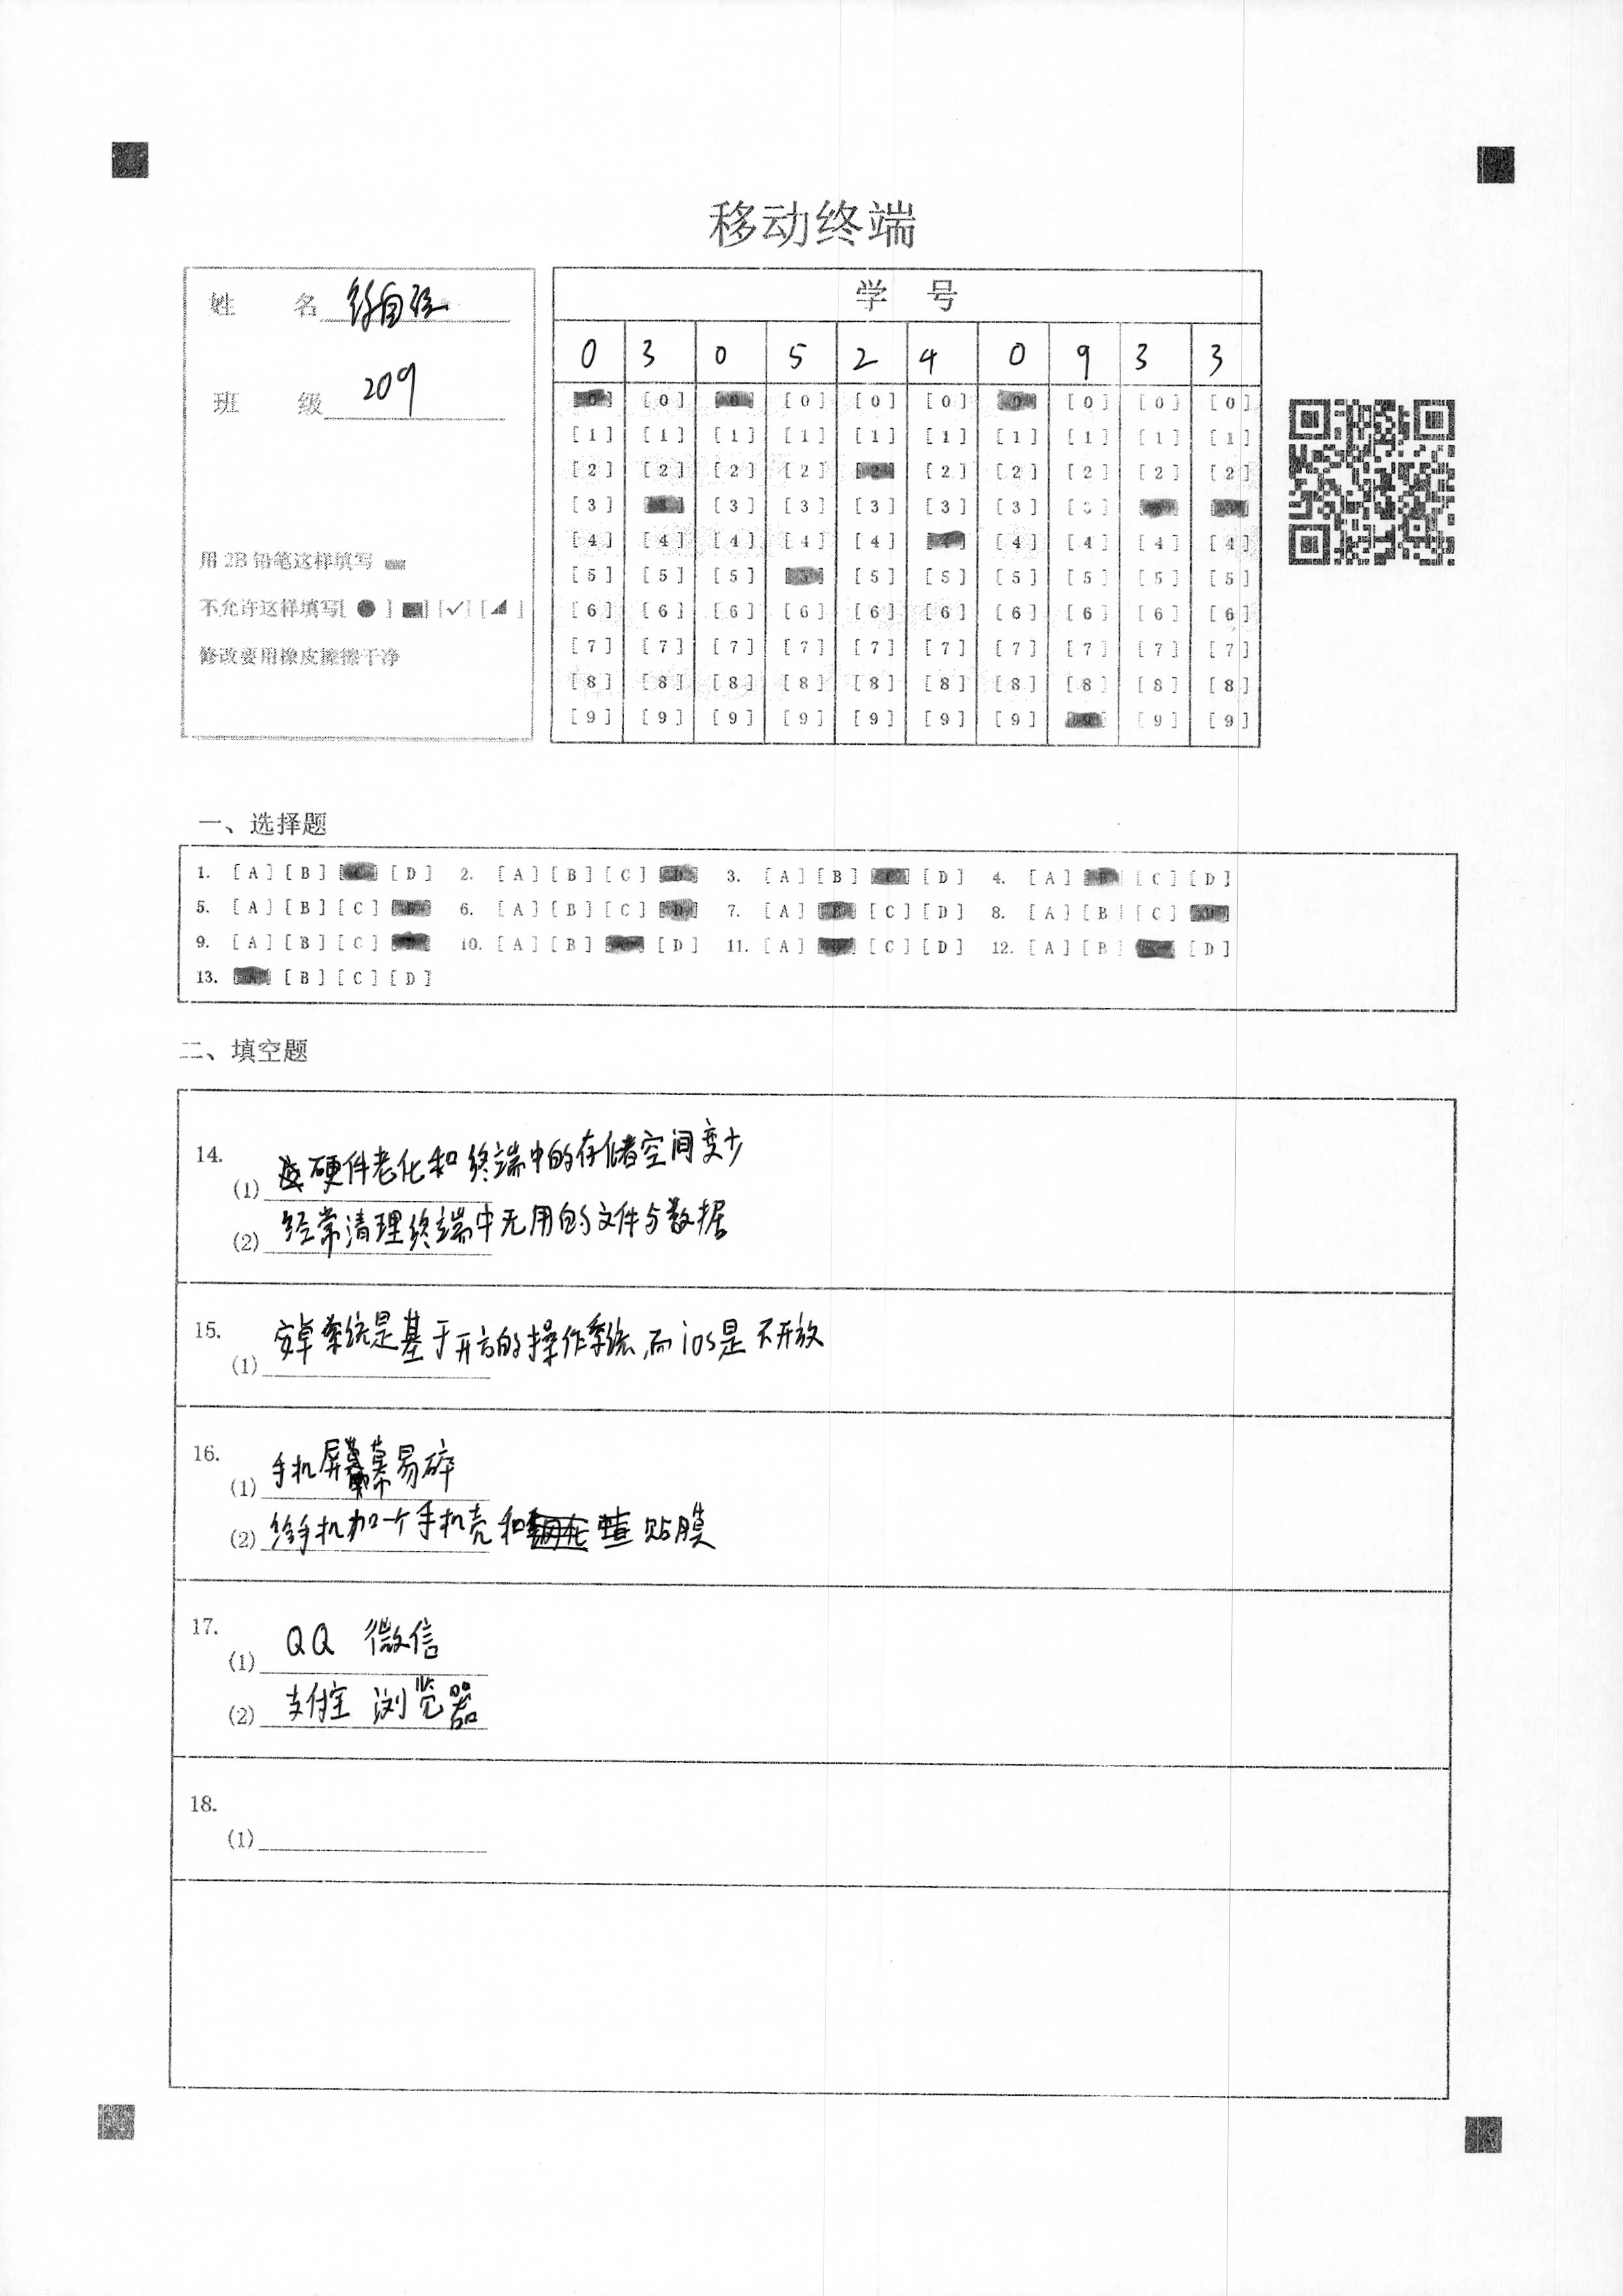 移动终端
姓 名
班 级 209
用2B铅笔这样填写
不允许这样填写[ ● ] [■] [✓] [◢ ]
修改要用橡皮擦擦干净
学 号
0 3 0 5 2 4 0 9 3 3
[0] [0] [0] [0] [0] [0] [0] [0] [0] [0]
[1] [1] [1] [1] [1] [1] [1] [1] [1] [1]
[2] [2] [2] [2] [2] [2] [2] [2] [2] [2]
[3] [3] [3] [3] [3] [3] [3] [3] [3] [3]
[4] [4] [4] [4] [4] [4] [4] [4] [4] [4]
[5] [5] [5] [5] [5] [5] [5] [5] [5] [5]
[6] [6] [6] [6] [6] [6] [6] [6] [6] [6]
[7] [7] [7] [7] [7] [7] [7] [7] [7] [7]
[8] [8] [8] [8] [8] [8] [8] [8] [8] [8]
[9] [9] [9] [9] [9] [9] [9] [9] [9] [9]
一、选择题
1. [A] [B] [C] [D] 2. [A] [B] [C] [D] 3. [A] [B] [C] [D] 4. [A] [B] [C] [D]
5. [A] [B] [C] [D] 6. [A] [B] [C] [D] 7. [A] [B] [C] [D] 8. [A] [B] [C] [D]
9. [A] [B] [C] [D] 10. [A] [B] [C] [D] 11. [A] [B] [C] [D] 12. [A] [B] [C] [D]
13. [A] [B] [C] [D]
二、填空题
14.
(1) 硬件老化和终端中的存储空间变少
(2) 经常清理终端中无用的文件与数据
15.
(1) 安卓系统是基于开放的操作系统,而ios是不开放
16.
(1) 手机屏幕易碎
(2) 给手机加一个手机壳和贴膜
17.
(1) QQ 微信
(2) 支付宝 浏览器
18.
(1)